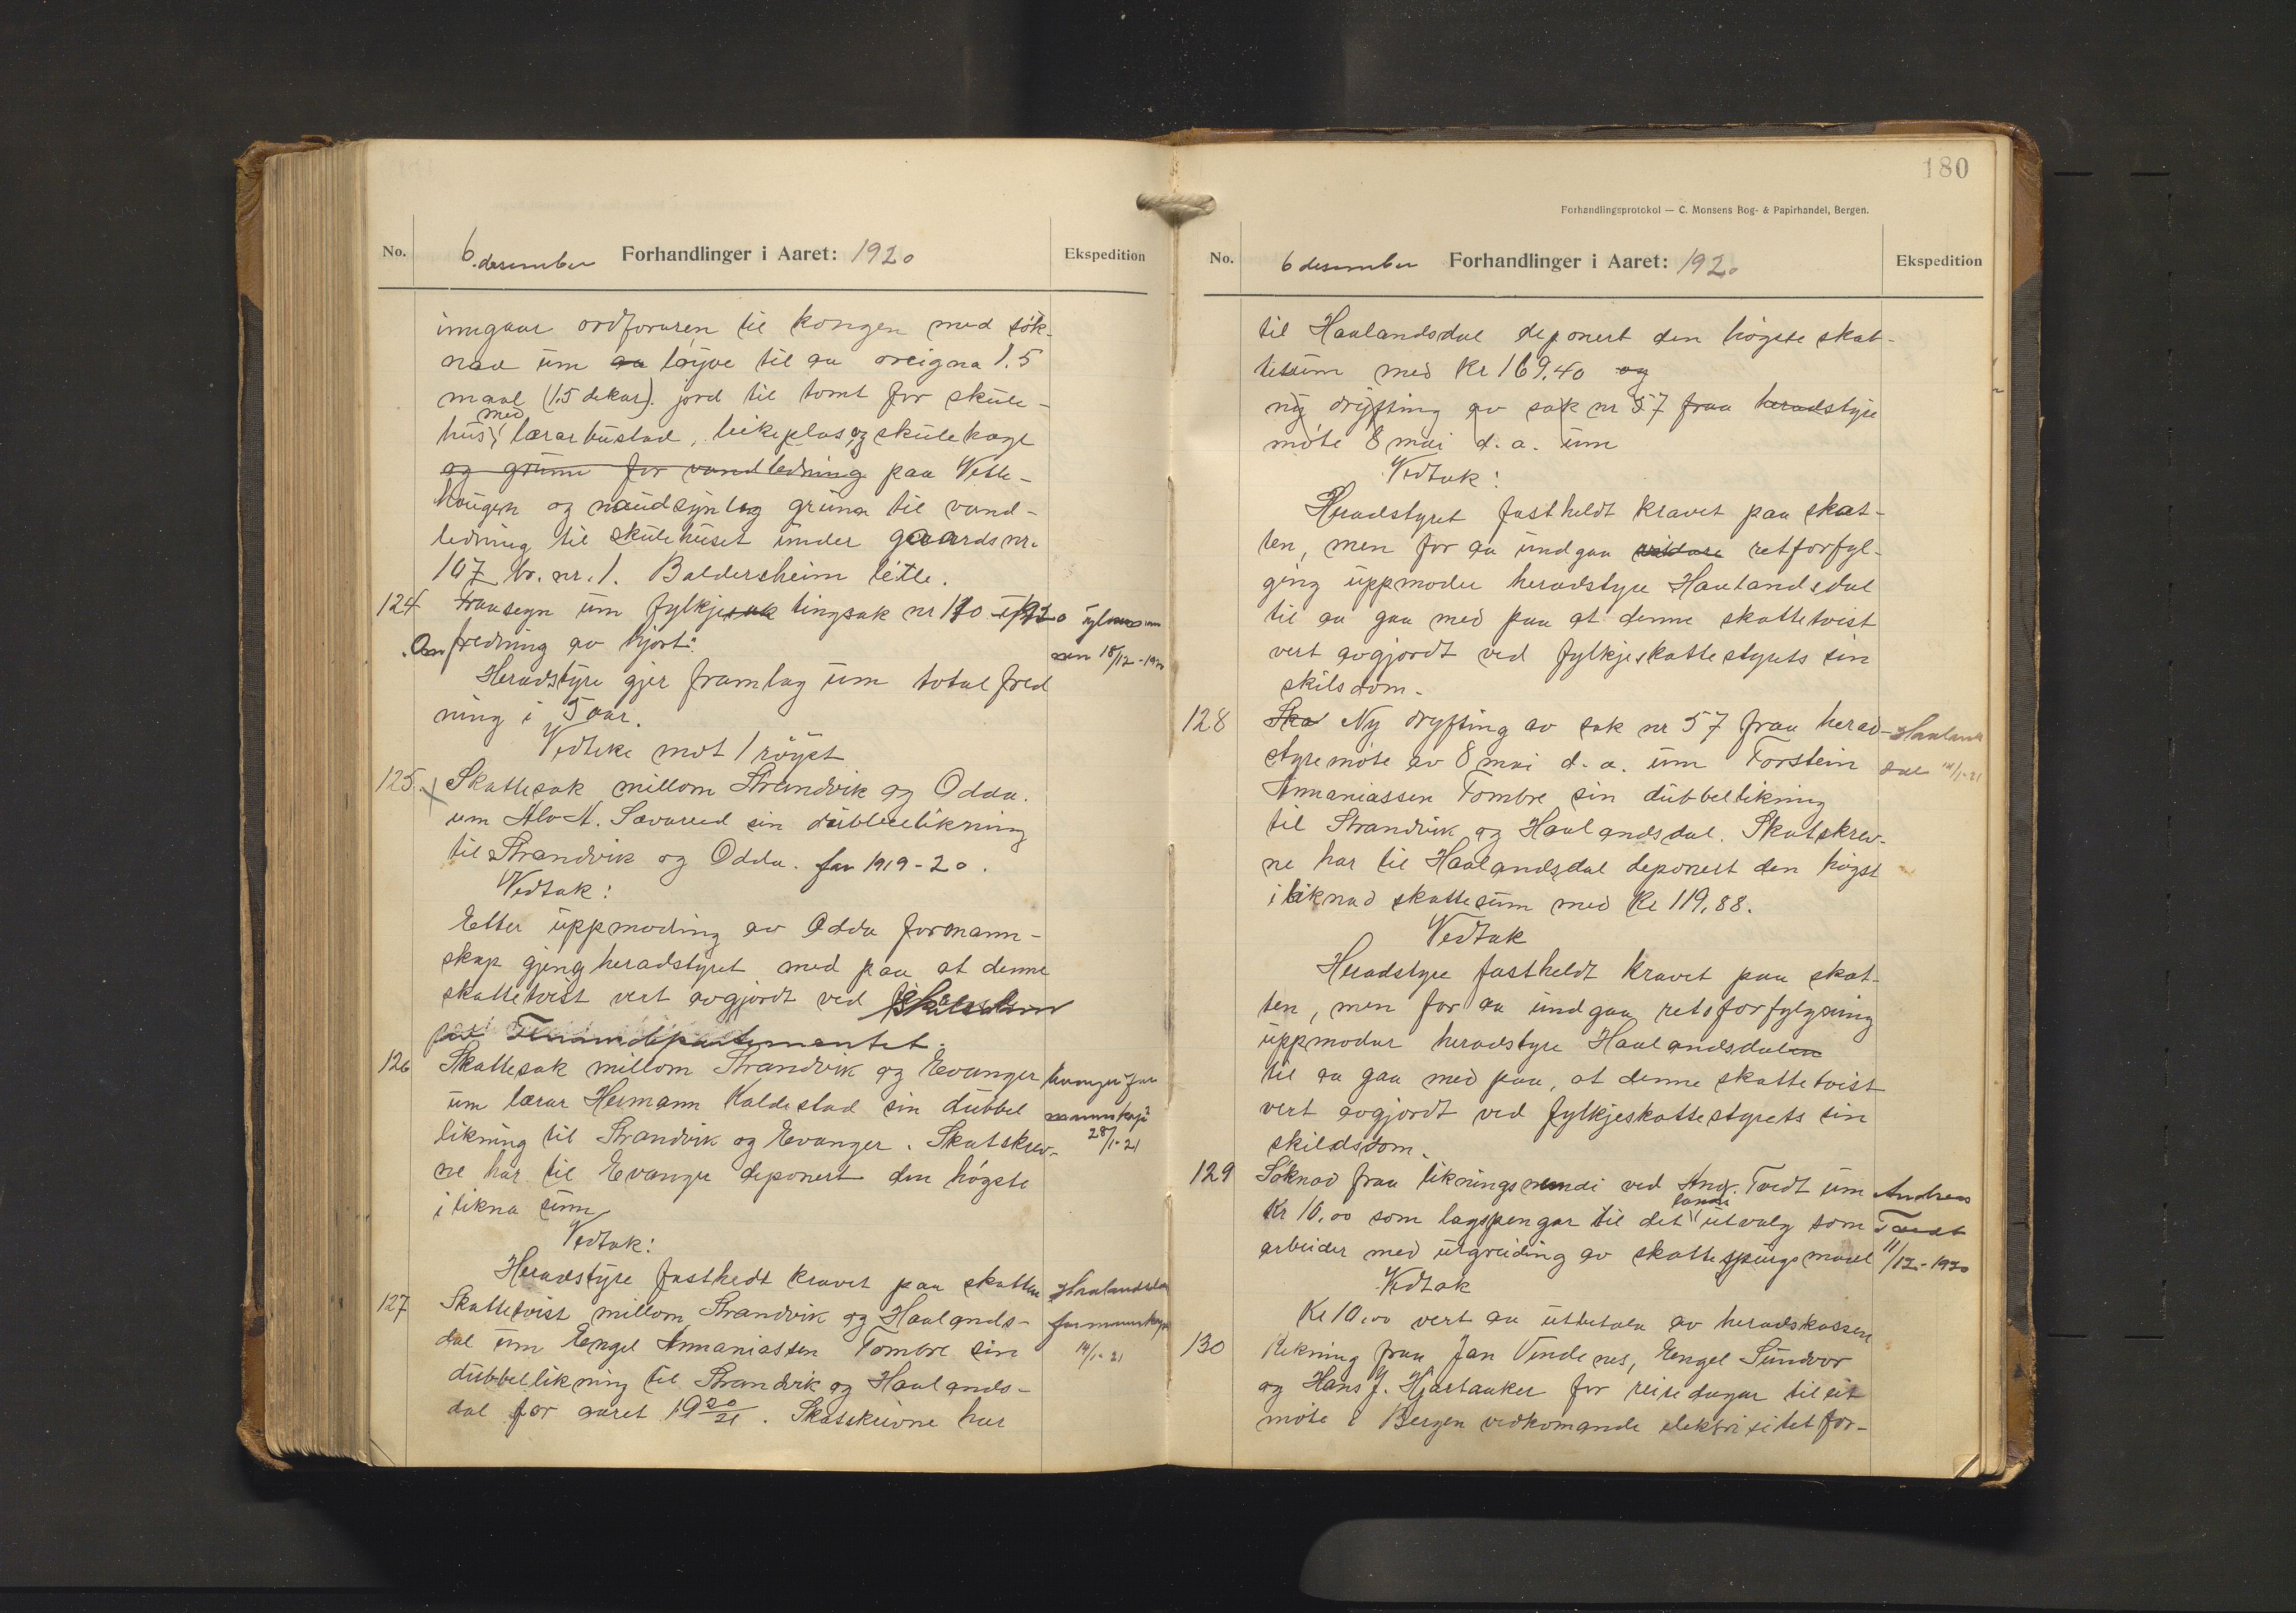 No.
6. desember Forhandlinger i Aaret: 1920
Ekspedition
inngaar ordføraren til kongen med søk-
nad um aa løyve til aa oreigna 1.5
maal (1.5 dekar). jord til tomt for skule-
hus med lærarbustad, leikeplas og skulehage
og grunn for vandledning paa Vetle-
haugen og naudsynleg grunn til vand-
ledning til skulehuset under gaardsnr.
107 br. nr. 1. Baldersheim litle.
124 Fraasegn um fylkjesak tingsak nr 170 1920
"Om fredning av hjort".
18/12-1920
Heradstyre gjer framlag um total fred
ning i 5 aar.
Vedteke mot 1 röyst
125. Skattesak millom Strandvik og Odda.
um Alv A. Sævareid sin dubbellikning
til Strandvik og Odda. for 1919-20.
Vedtak:
Etter uppmoding av Odda formann-
skap gjeng heradstyret med paa at denne
skattetvist vert avgjordt ved skilsdom
Finansdepartementet.
126 Skattesak millom Strandvik og Evanger
um lærar Hermann Kaldestad sin dubbel
likning til Strandvik og Evanger. Skatskrev-
ne har til Evanger deponert den högste
ilikna sum
Evanger for
mannskap
28/1-21
Vedtak:
Heradstyre fasthedt kravet paa skatten
127 Skattetvist millom Strandvik og Haalands-
dal um Engel Annaniassen Tombre sin
dubbellikning til Strandvik og Haalands-
dal for aaret 1920/21. Skatskrivne har
Haalandsdal
formannskap
14/1-21
180
Forhandlingsprotokol — C. Monsens Bog- & Papirhandel, Bergen.
No.
6 desember Forhandlinger i Aaret: 1920
Ekspedition
til Haalandsdal deponert den högste skat-
tesum med Kr 169.40 og
ny dryfting av sak nr 57 fraa heradstyre
möte 8 mai d. a. um
Vedtak:
Heradstyret fastheldt kravet paa skat-
ten, men for aa undgaa vidare retforfyl-
ging uppmoder heradstyre Haalandsdal
til aa gaa med paa at denne skattetvist
vert avgjordt ved fylkjeskattestyrets sin
skilsdom.
128 Ska Ny dryfting av sak nr 57 fraa herad-
styremöte av 8 mai d. a. um Torstein
Annaniassen Tombre sin dubbellikning
til Strandvik og Haalandsdal. Skatskrev-
ne har til Haalandsdal deponert den högst
iliknad skattesum med Kr 119,88.
Haalands
dal 14/1-21
Vedtak
Heradstyre fastheldt kravet paa skat-
ten, men for aa undgaa retsforfylgning
uppmodar heradstyre Haalandsdalen
til aa gaa med paa, at denne skattetvist
vert avgjordt ved fylkjeskattestyrets sin
skildsdom.
129 Söknad fraa likningsnemdi ved And. Tvedt um
Kr 10,00 som lagspengar til det lands utvalg som
arbeider med utgreiding av skattespursmaal
Andreas
Tvedt
11/12-1920
Vedtak
Kr 10,00 vert aa utbetala av heradskassen
130 Rekning fraa Jan Vindenes, Engel Sundvor
og Hans J. Hjartaaker for reisedagar til eit
möte i Bergen vedkomande elektrisitetfor-